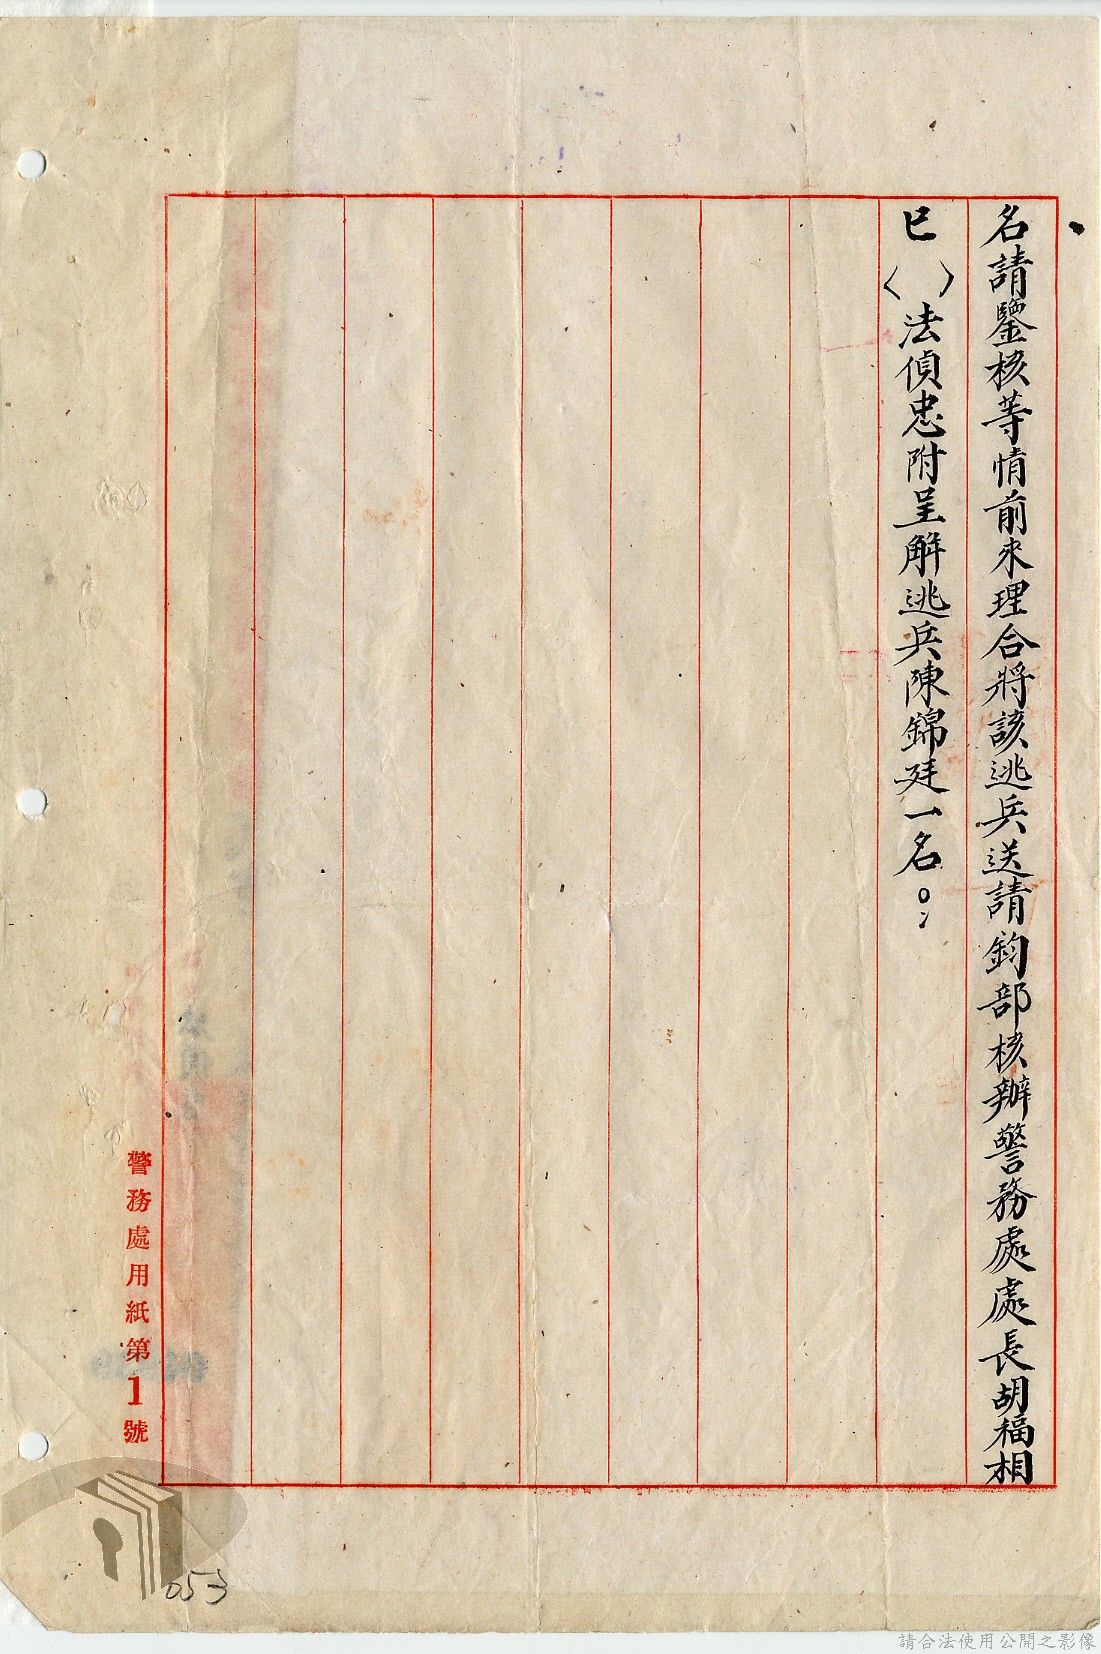 名請鑒核等情前來理合將該逃兵送請鈞部核辦警務處處長胡福相
巳〈 〉法偵忠附呈解逃兵陳錦廷一名。
警務處用紙第1號
053
請合法使用公開之影像